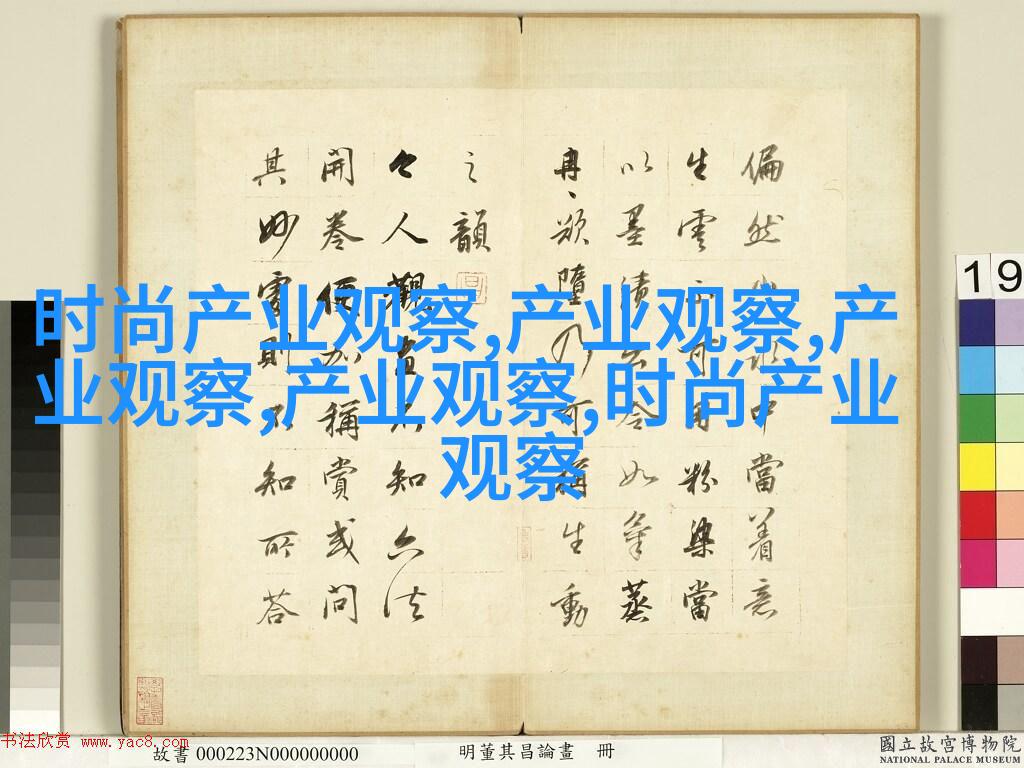 时尚产业观察,产业观察,产
业观察,产业观察,时尚产业
观察
偏然山水中當着意
生雲不可用粉染當
以墨漬出令如氣蒸
冉冉欲墮乃可稱生動
之韻
人觀畫不知六法
開卷便加稱賞或問
其妙處則不知所答
19
书法欣赏 www.yac8.com
故書 000223N000000000
明董其昌論畫 冊
國立故宮博物院
NATIONAL PALACE MUSEUM